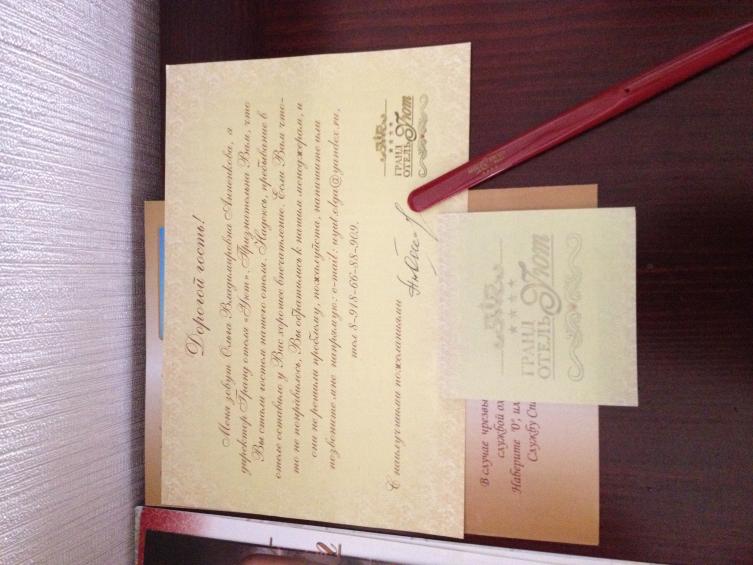 Дорогой гость!
Меня зовут Ольга Владимировна Анненкова, я
директор Гранд отеля «Уют». Признательна Вам, что
Вы стали гостем нашего отеля. Надеюсь, пребывание в
отеле оставило у Вас хорошее впечатление. Если Вам что-
то не понравилось, Вы обратились к нашим менеджерам, и
они не решили проблему, пожалуйста, напишите или
позвоните мне напрямую: e-mail: uyut.olga@yandex.ru,
тел 8-918-66-88-909.
С наилучшими пожеланиями
ГРАНД
ОТЕЛЬ Уют
ГРАНД
ОТЕЛЬ Уют
В случае чрезвы
службой ох
Наберите "0", ил
Службу Спа